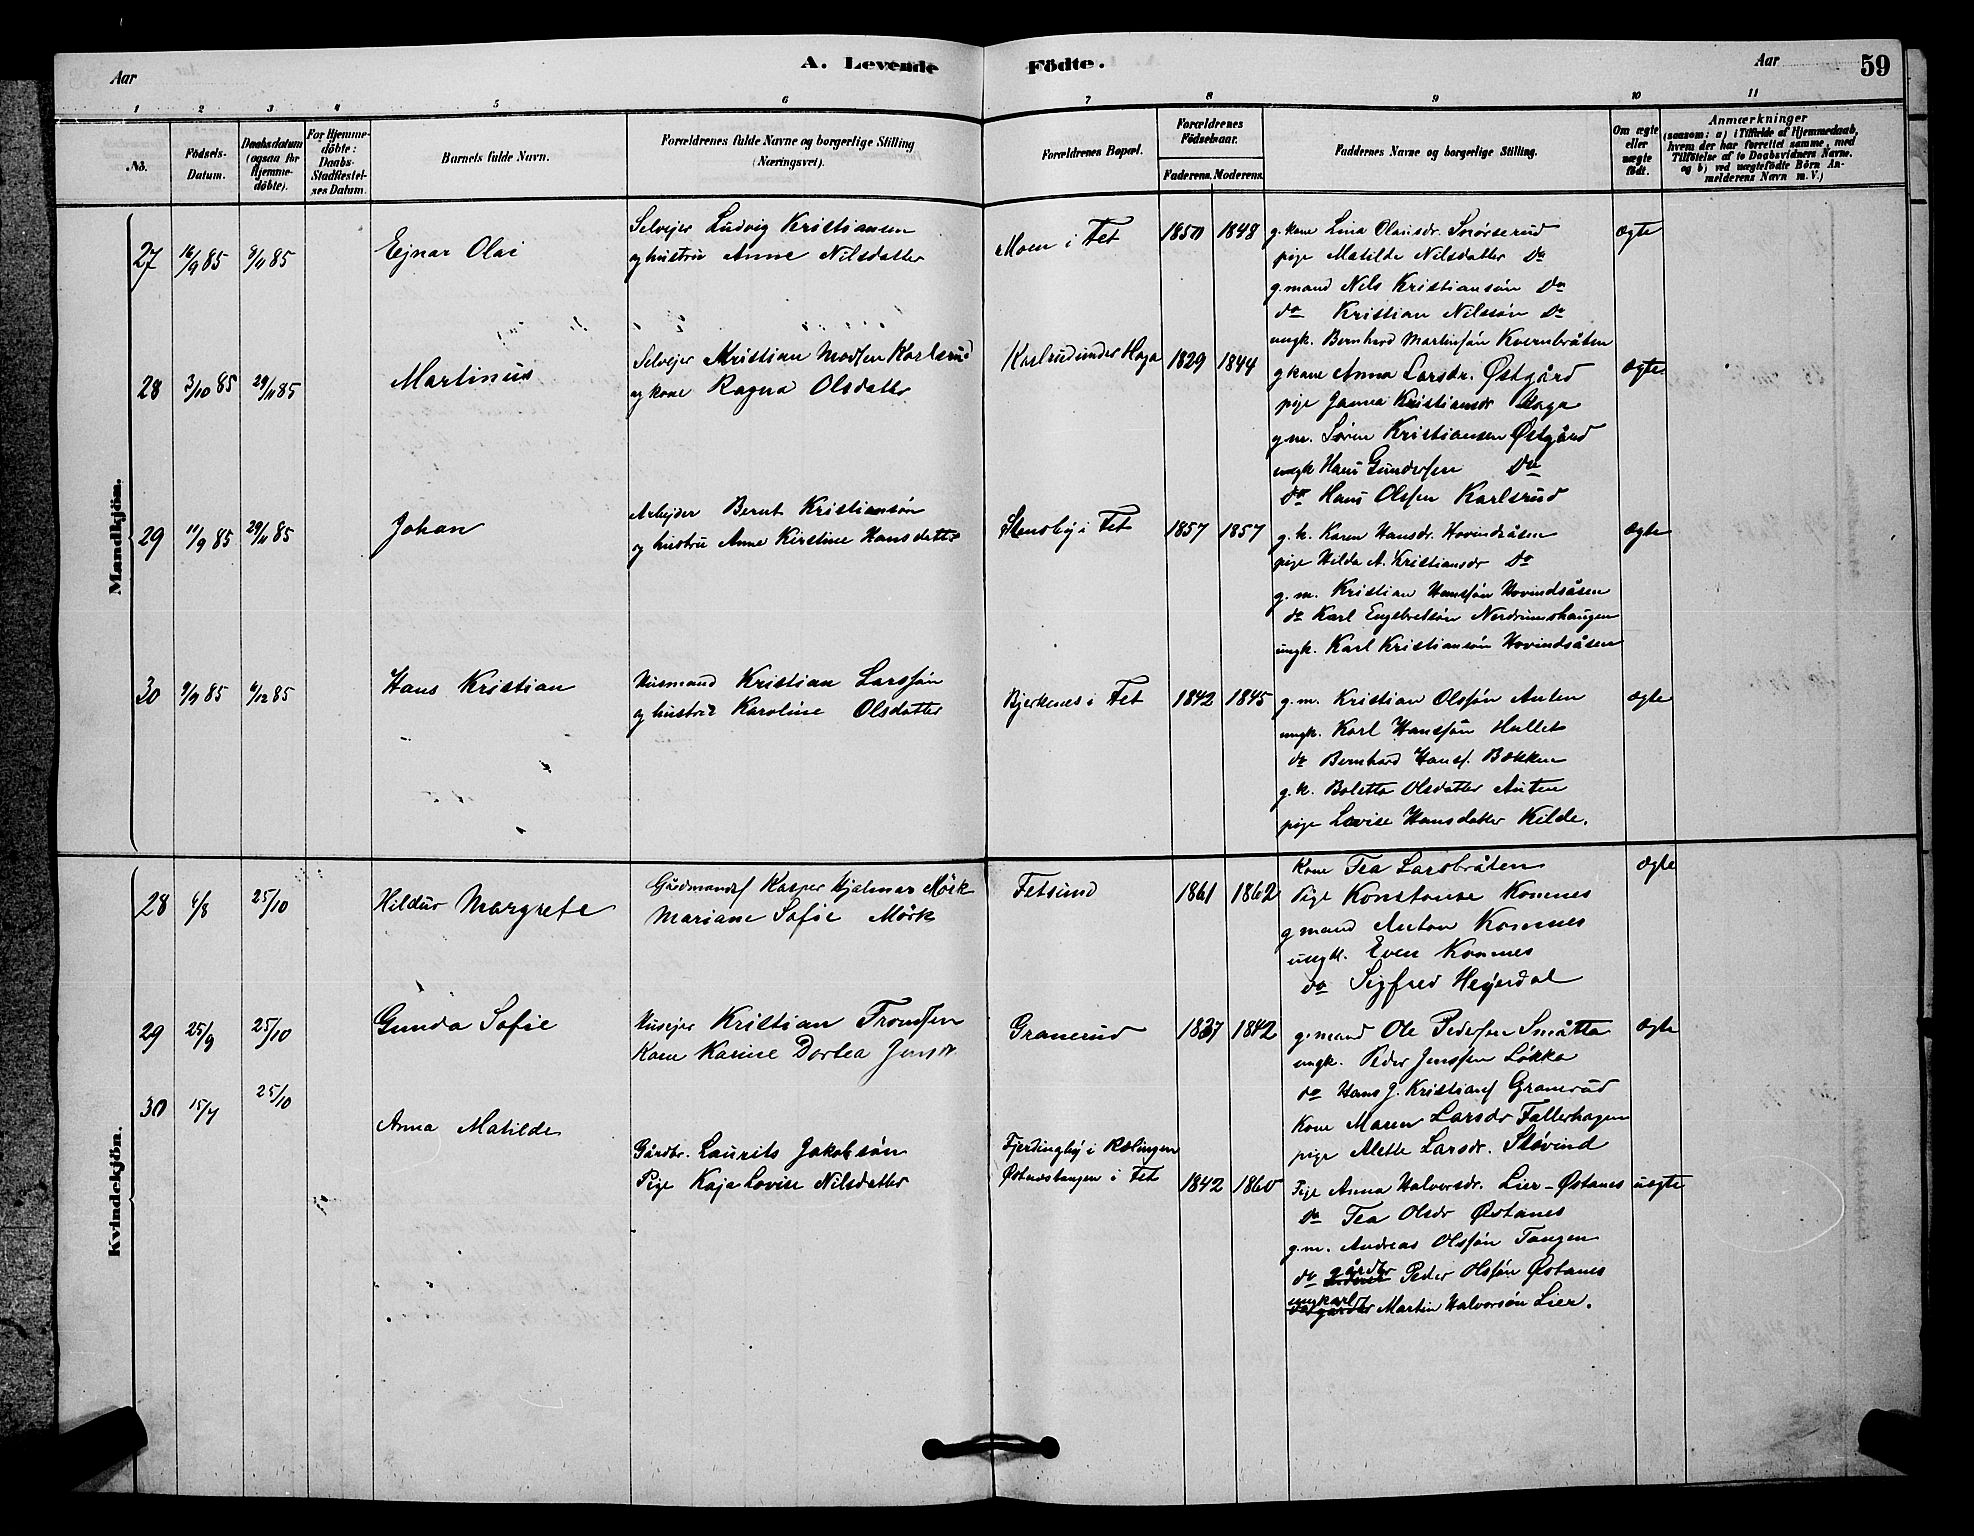 Aar
A. Levende Födte.
Aar
59
1 2 3 4 5 6 7 8 9 10 11
No.
Födsels-Datum.
Daabsdatum (ogsaa for Hjemme-döbte).
For Hjemme-döbte: Daabs-Stadfæstel-ses Datum.
Barnets fulde Navn.
Forældrenes fulde Navne og borgerlige Stilling (Næringsvei).
Forældrenes Bopæl.
Forældrenes Födselsaar.
Faderens. Moderens.
Faddernes Navne og borgerlige Stilling.
Om ægte eller uægte födt.
Anmærkninger
(saasom: a) i Tilfælde af Hjemmedaab, hvem der har forrettet samme, med Tilföielse af to Daabsvidners Navne. og b) ved uægtefödte Börn An-melderens Navn m. V.)
Mandkjön.
27 16/9 85 8/11 85 Ejnar Olai
Selvejer Ludvig Kristiansen
og hustru Anne Nilsdatter
Moen i Fet 1850 1848
g. kone Lina Olausdr. Snörserud
pige Matilde Nilsdatter do
g. mand Nels Kristiansön do
do Kristian Nilssön do
ungk. Bernhard Martinsön Kvernbråten
ægte
28 3/10 85 29/11 85 Martinus
Selvejer Kristian Madsen Karlsrud
og kone Ragna Olsdatter
Karlsrud under Haga 1829 1844
g kone Anna Larsdr. Østgård
pige Janna Kristiansdr Haga
g m. Sören Kristiansen Østgård
ungk Hans Gundersen do
do Hans Olsen Karlsrud
ægte
29 11/9 85 29/11 85 Johan
Arbejder Bernt Kristiansön
og hustru Anne Kirstine Hansdatter
Stensby i Fet 1857 1857
g. k. Karen Hansdr. Hovindsåsen
pige Hilda A. Kristiansdr do
g. m. Kristian Hanssön Hovindsåsen
do Karl Engebretsön Nerdrumshaugen
ungk. Karl Kristiansön Hovindsåsen
ægte
30 9/9 85 6/12 85 Hans Kristian
Husmand Kristian Larssön
og hustru Karoline Olsdatter
Bjerkenes i Fet 1842 1845
g. m. Kristian Olssön Auten
ungk. Karl Hanssön Hullet
do Bernhard Hanss. Bækken
g. k. Boletta Olsdatter Auten
pige Lovise Hansdatter Kilde.
ægte
Kvindekjön.
28 6/8 25/10 Hildur Margrete
Gårdmands Kasper Hjalmar Mörk
Mariane Sofie Mörk
Fetsund 1861 1862
Kone Tea Larsbråten
Pige Konstanse Komnes
g mand Anton Komnes
ungk. Even Komnes
do Sigfred Heyerdal
ægte
29 25/9 25/10 Gunda Sofie
Husejer Kristian Tronsen
Kone Karine Dortea Jensdr
Granerud 1837 1842
g. mand Ole Pedersen Småtta
ungk. Peder Jenssen Løkka
do Hans J. Kristians Granerud
Kone Maren Larsdr Fallerhagen
pige Alette Larsdr. Stövind
ægte
30 15/7 25/10 Anna Matilde
Gårdbr. Laurits Jakobsön
Pige Kaja Lovise Nilsdatter
Fjerdingby i Rælingen
Østnestangen i Fet 1842 1860
Pige Anna Halvorsdr. Lier-Østanes
do Tea Olsdr Østanes
g. m. Andreas Olssön Tangen
do gårdbr Peder Olssön Østanes
ungkarl Martin Halvorsön Lier.
uægte